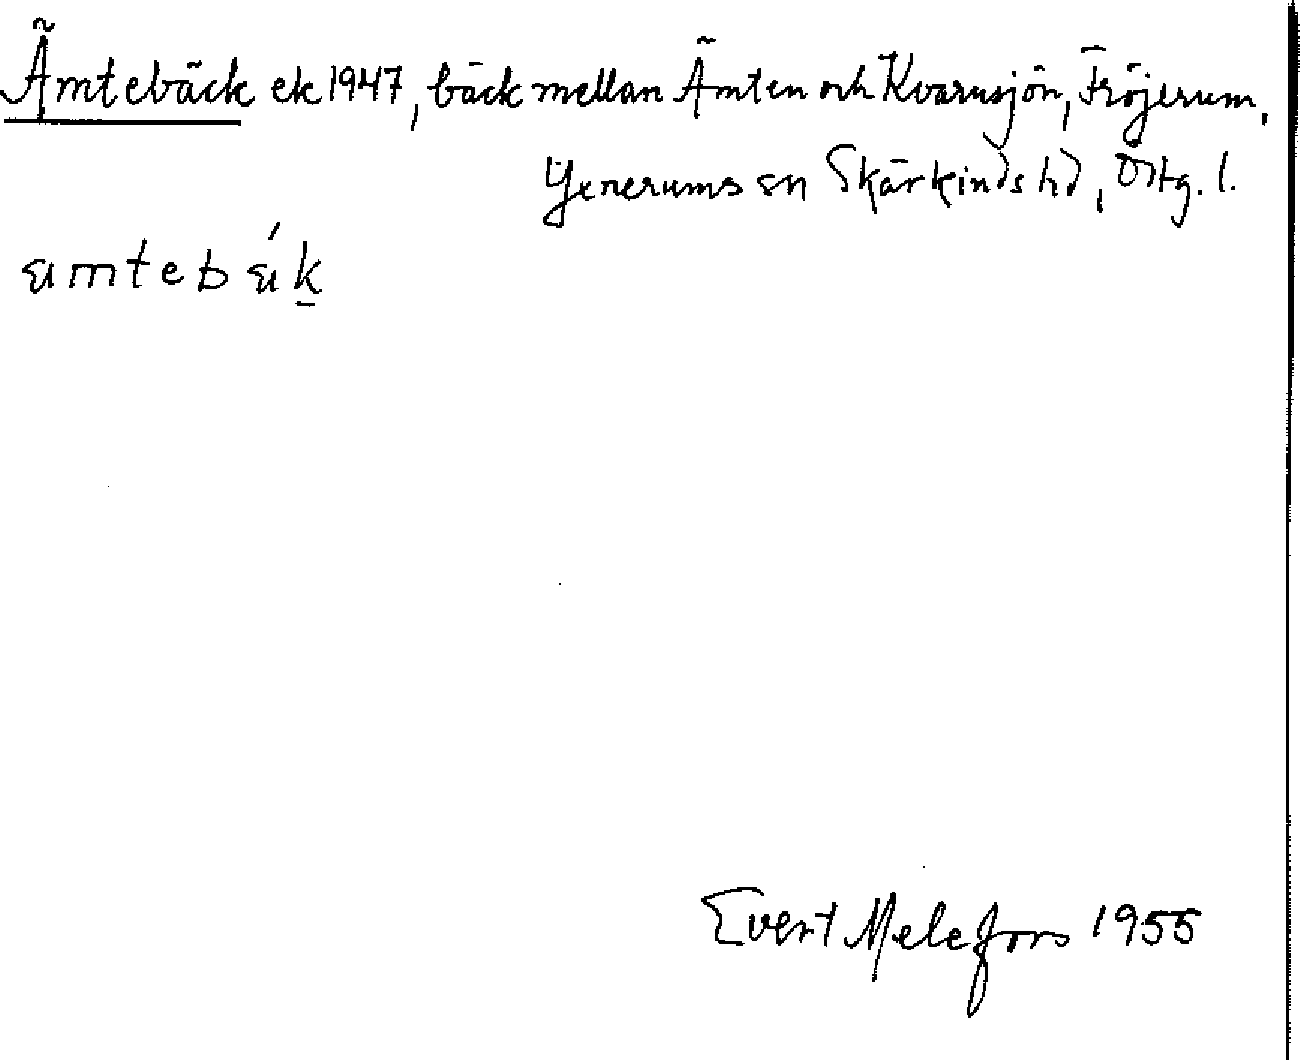 Ämtebäck ek 1947, bäck mellan Ämten och Kvarnsjön, Fröjerum,
Yxnerums sn Skärkinds hd, Östg. l.
ämtebäk
Evert Melefors 1955